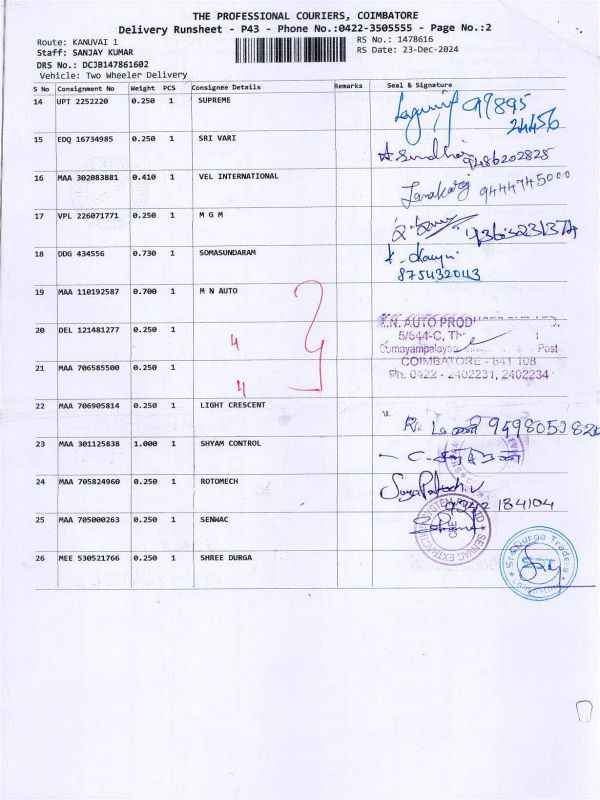 THE PROFESSIONAL COURIERS, COIMBATORE
Delivery Runsheet - P43 - Phone No.:0422-3505555 - Page No.:2
Route: KANUVAI 1
Staff: SANJAY KUMAR
DRS No.: DCJB147861602
Vehicle: Two Wheeler Delivery
RS No.: 1478616
RS Date: 23-Dec-2024
S No Consignment No Weight PCS Consignee Details Remarks Seal & Signature
14 UPT 2252220 0.250 1 SUPREME 97895
24456
15 EDQ 16734985 0.250 1 SRI VARI 9486202825
16 MAA 302083881 0.410 1 VEL INTERNATIONAL 9444745000
17 VPL 226071771 0.250 1 M G M
18 DDG 434556 0.730 1 SOMASUNDARAM
8754320113
19 MAA 110192587 0.700 1 M N AUTO
20 DEL 121481277 0.250 1 4
21 MAA 706585500 0.250 1 4
M.N. AUTO PROD
5/644-C,
Somayampalayam Post
COIMBATORE - 641 108
Ph: 0422 - 2402231, 2402234
22 MAA 706905814 0.250 1 LIGHT CRESCENT
23 MAA 301125838 1.000 1 SHYAM CONTROL
24 MAA 705824960 0.250 1 ROTOMECH
9342 184104
25 MAA 705000263 0.250 1 SENWAC
26 MEE 530521766 0.250 1 SHREE DURGA
Sri Durga Traders